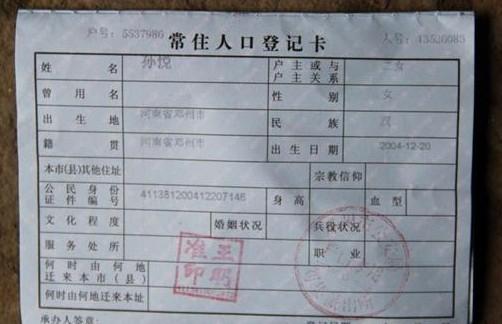 户号：5537986 人号：13526083
常住人口登记卡
姓名 孙悦 户主或与户主关系 二女
曾用名 性别 女
出生地 河南省邓州市 民族 汉
籍贯 河南省邓州市 出生日期 2004-12-20
本市（县）其他住址 宗教信仰
公民身份证件编号 411381200412207146 身高 血型
文化程度 婚姻状况 兵役状况
服务处所 职业
何时由何地迁来本市（县）
何时由何地迁来本址
承办人签章：